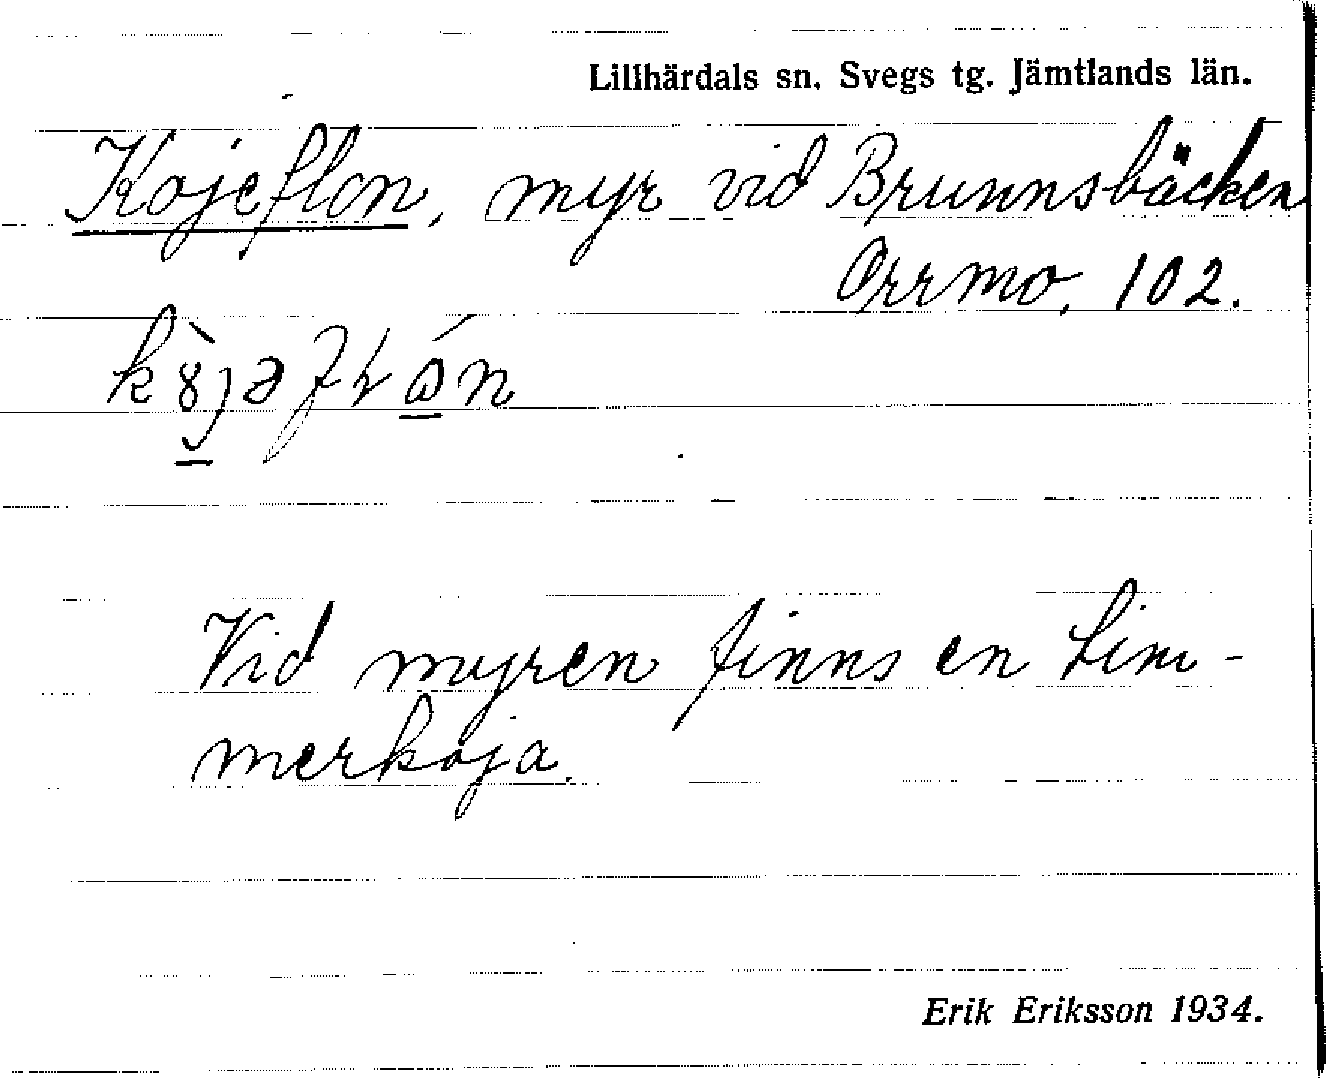 Lillhärdals sn. Svegs tg. Jämtlands län.
Kojeflon, myr vid Brunnsbäcken
Orrmo, 102.
Vid myren finns en tim-
merkoja.
Erik Eriksson 1934.